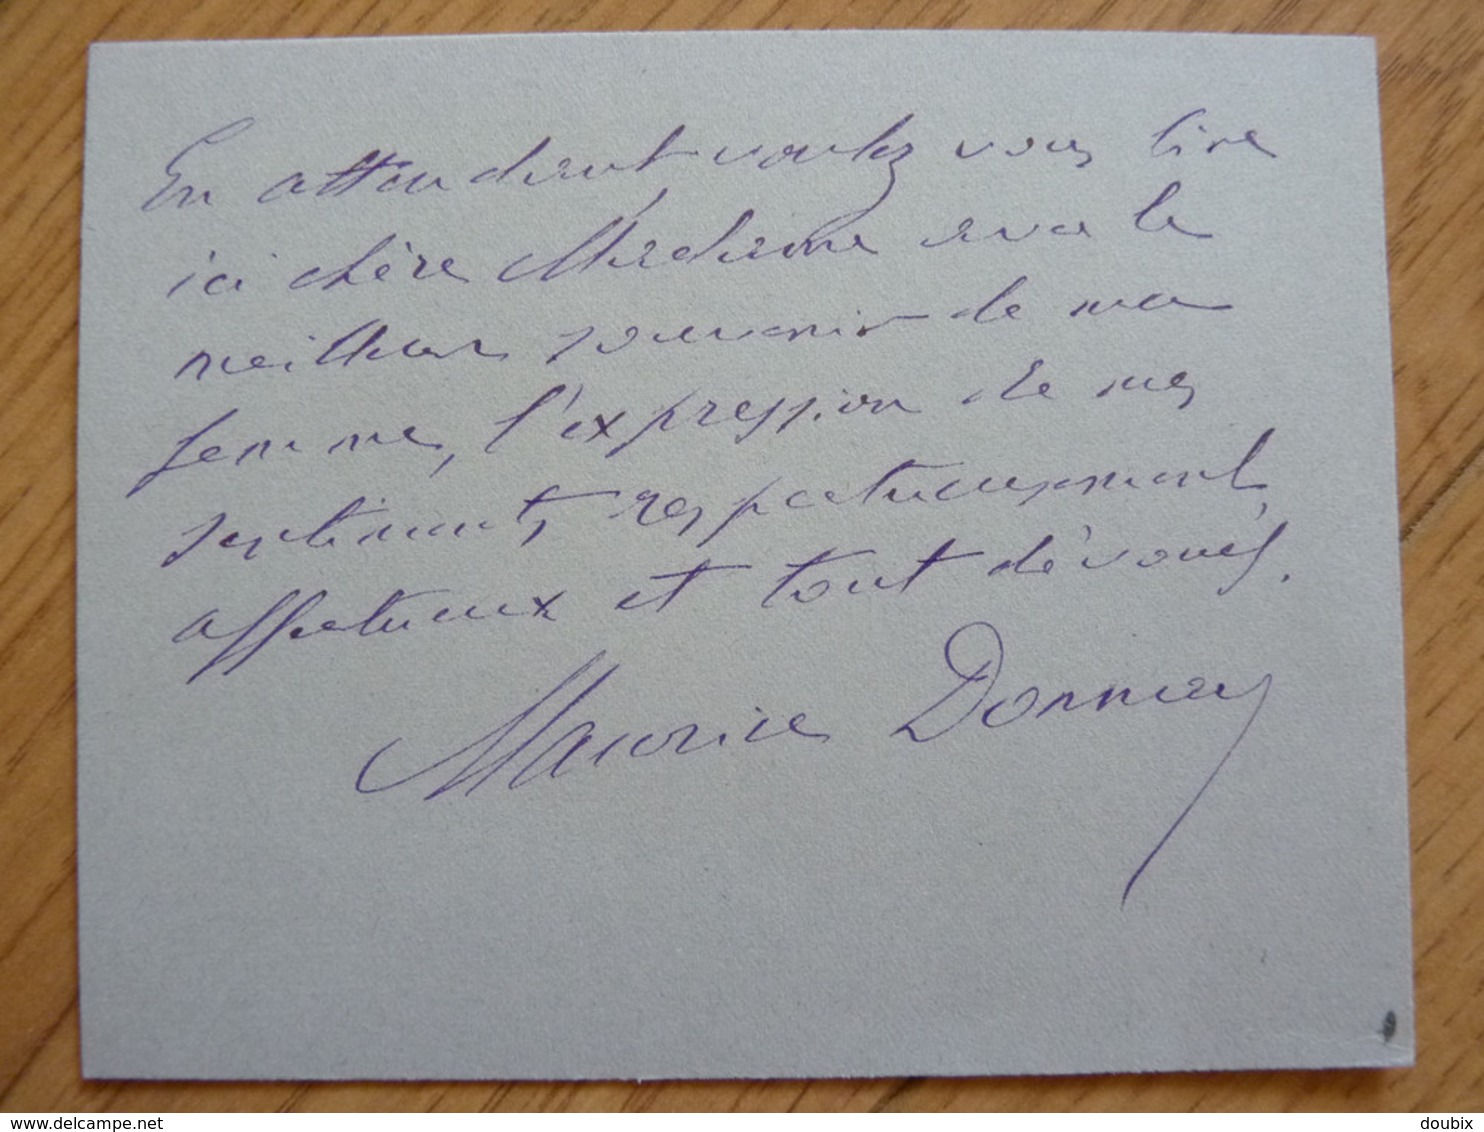 En attendant, voulez vous lire
ici chère Madame avec le
meilleur souvenir de ma
femme, l'expression de mes
sentiments respectueusement
affectueux et tout dévoués.
Maurice Donnay
delcampe.net
doubix